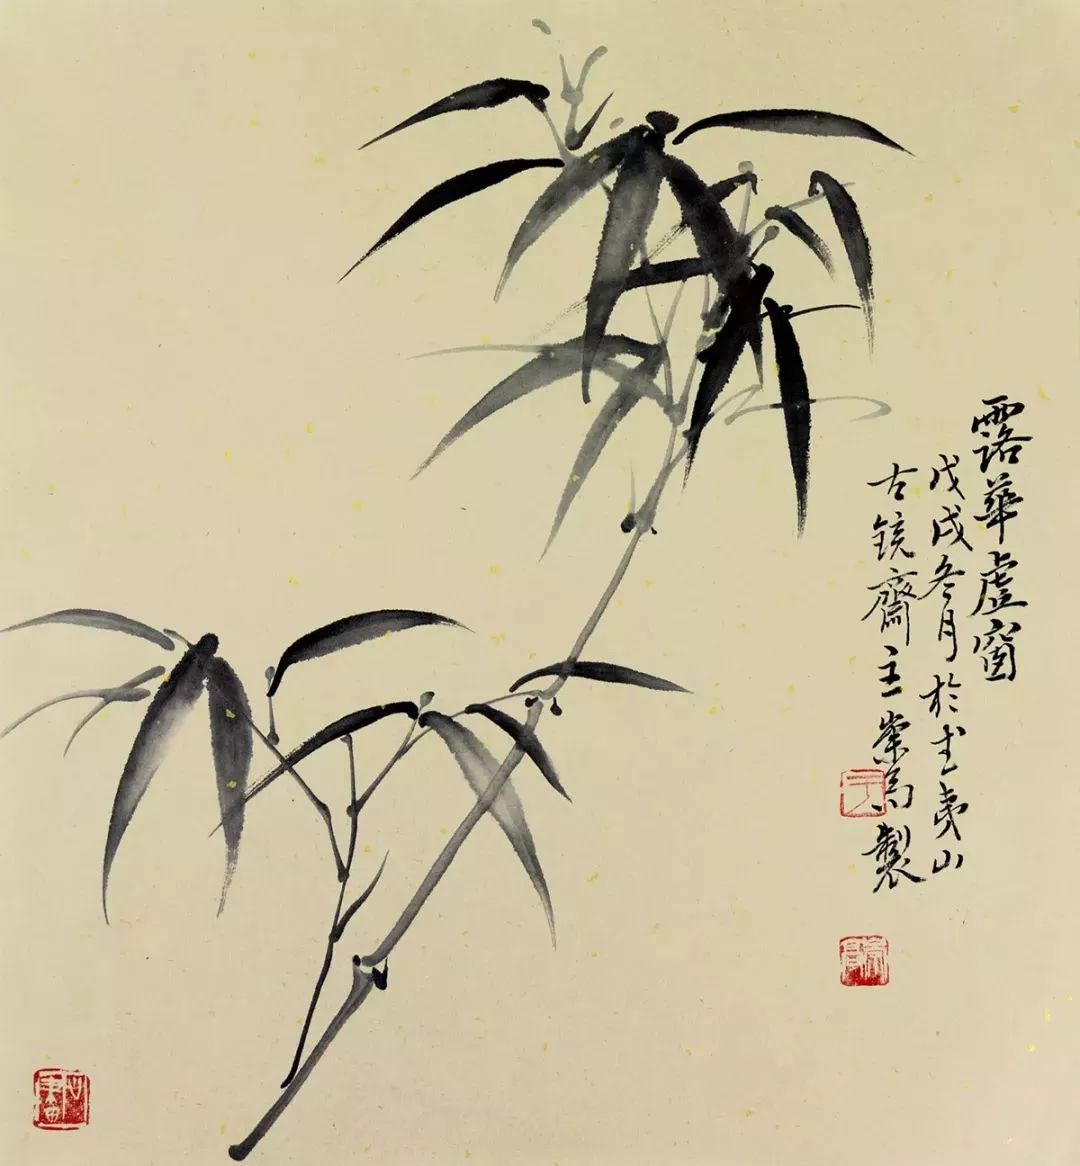 露華虛窗
戊戌冬月於武夷山
古鏡齋主崇為製